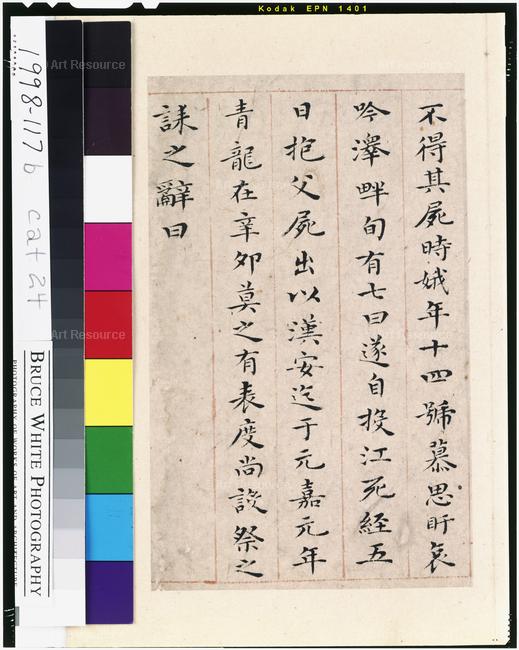 Kodak EPN 1401
© Art Resource
1998-117 b cat 24
© Art Resource
BRUCE WHITE PHOTOGRAPHY
PHOTOGRAPHS OF WORKS OF ART AND ARCHITECTURE
不得其屍時娥年十四號慕思盱哀
吟澤畔旬有七日遂自投江死經五
日抱父屍出以漢安迄于元嘉元年
青龍在辛卯莫之有表度尚設祭之
誄之辭曰